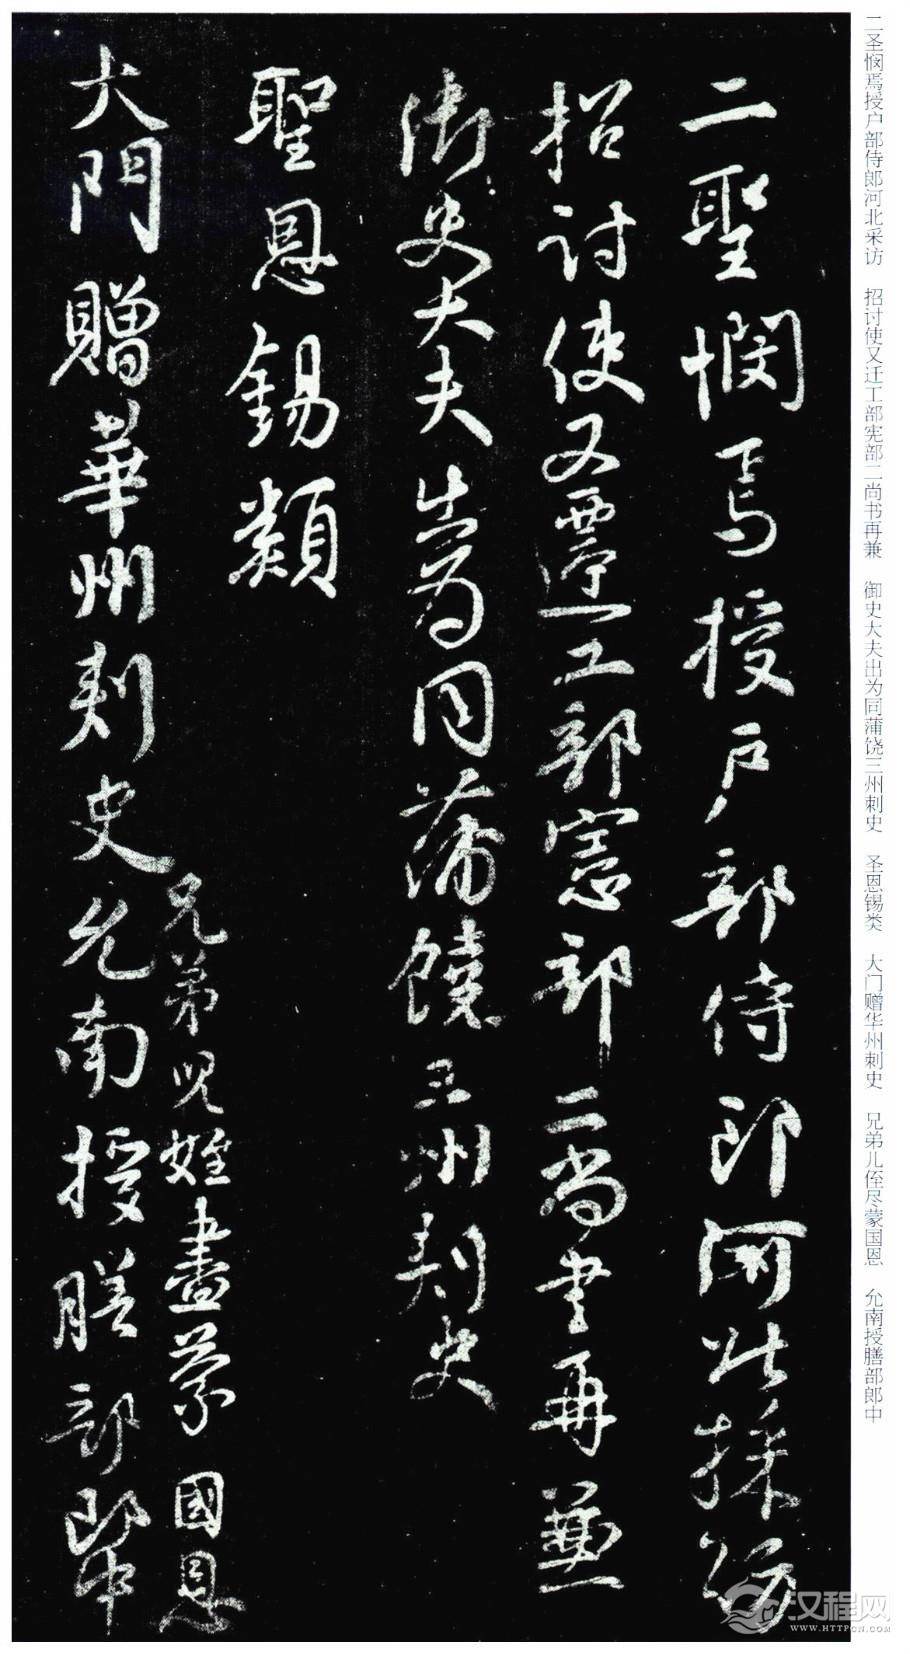 二聖憫焉授户部侍郎河北採訪
招討使又遷工部憲部二尚書再兼
御史大夫出為同蒲饒三州刺史
聖恩錫類
兄弟兒姪盡蒙國恩
大門贈華州刺史允南授膳部郎中
二圣悯焉授户部侍郎河北采访 招讨使又迁工部宪部二尚书再兼 御史大夫出为同蒲饶三州刺史 圣恩锡类 大门赠华州刺史 兄弟儿侄尽蒙国恩 允南授膳部郎中
汉程网
WWW.HTTPCN.COM